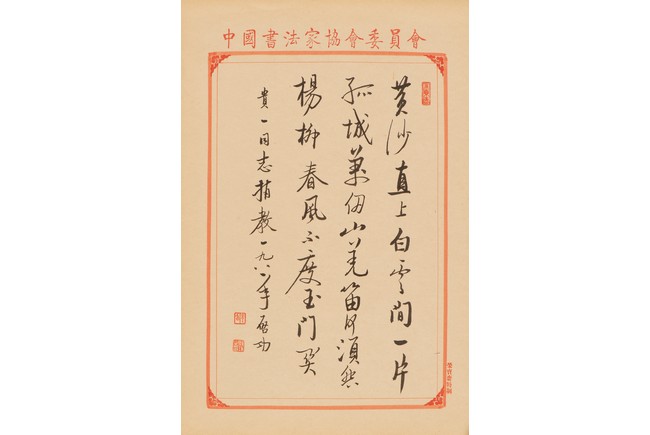 中國書法家協會委員會
黄沙直上白雲間一片
孤城萬仞山羌笛何須怨
楊柳春風不度玉門関
貴一同志指教一九八年啟功